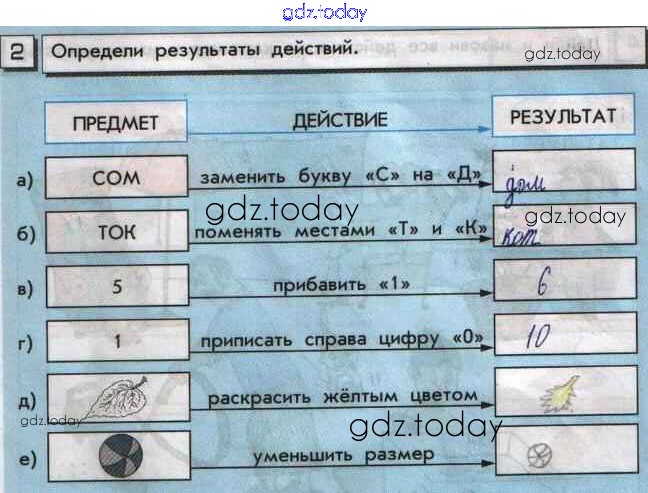 gdz.today
2 Определи результаты действий.
gdz.today
ПРЕДМЕТ ДЕЙСТВИЕ РЕЗУЛЬТАТ
а) СОМ заменить букву «С» на «Д» дом
gdz.today
gdz.today
б) ТОК поменять местами «Т» и «К» кот
в) 5 прибавить «1» 6
г) 1 приписать справа цифру «0» 10
д) раскрасить жёлтым цветом
gdz.today
gdz.today
е) уменьшить размер